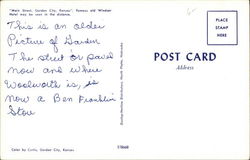 "Main Street, Garden City, Kansas", Famous old Windsor
Hotel may be seen in the distance.
This is an older
Picture of Garden
The street is paved
now and where
Woolworth is, is
now a Ben Franklin
Store
Color by Curtis, Garden City, Kansas
POST CARD
Address
PLACE
STAMP
HERE